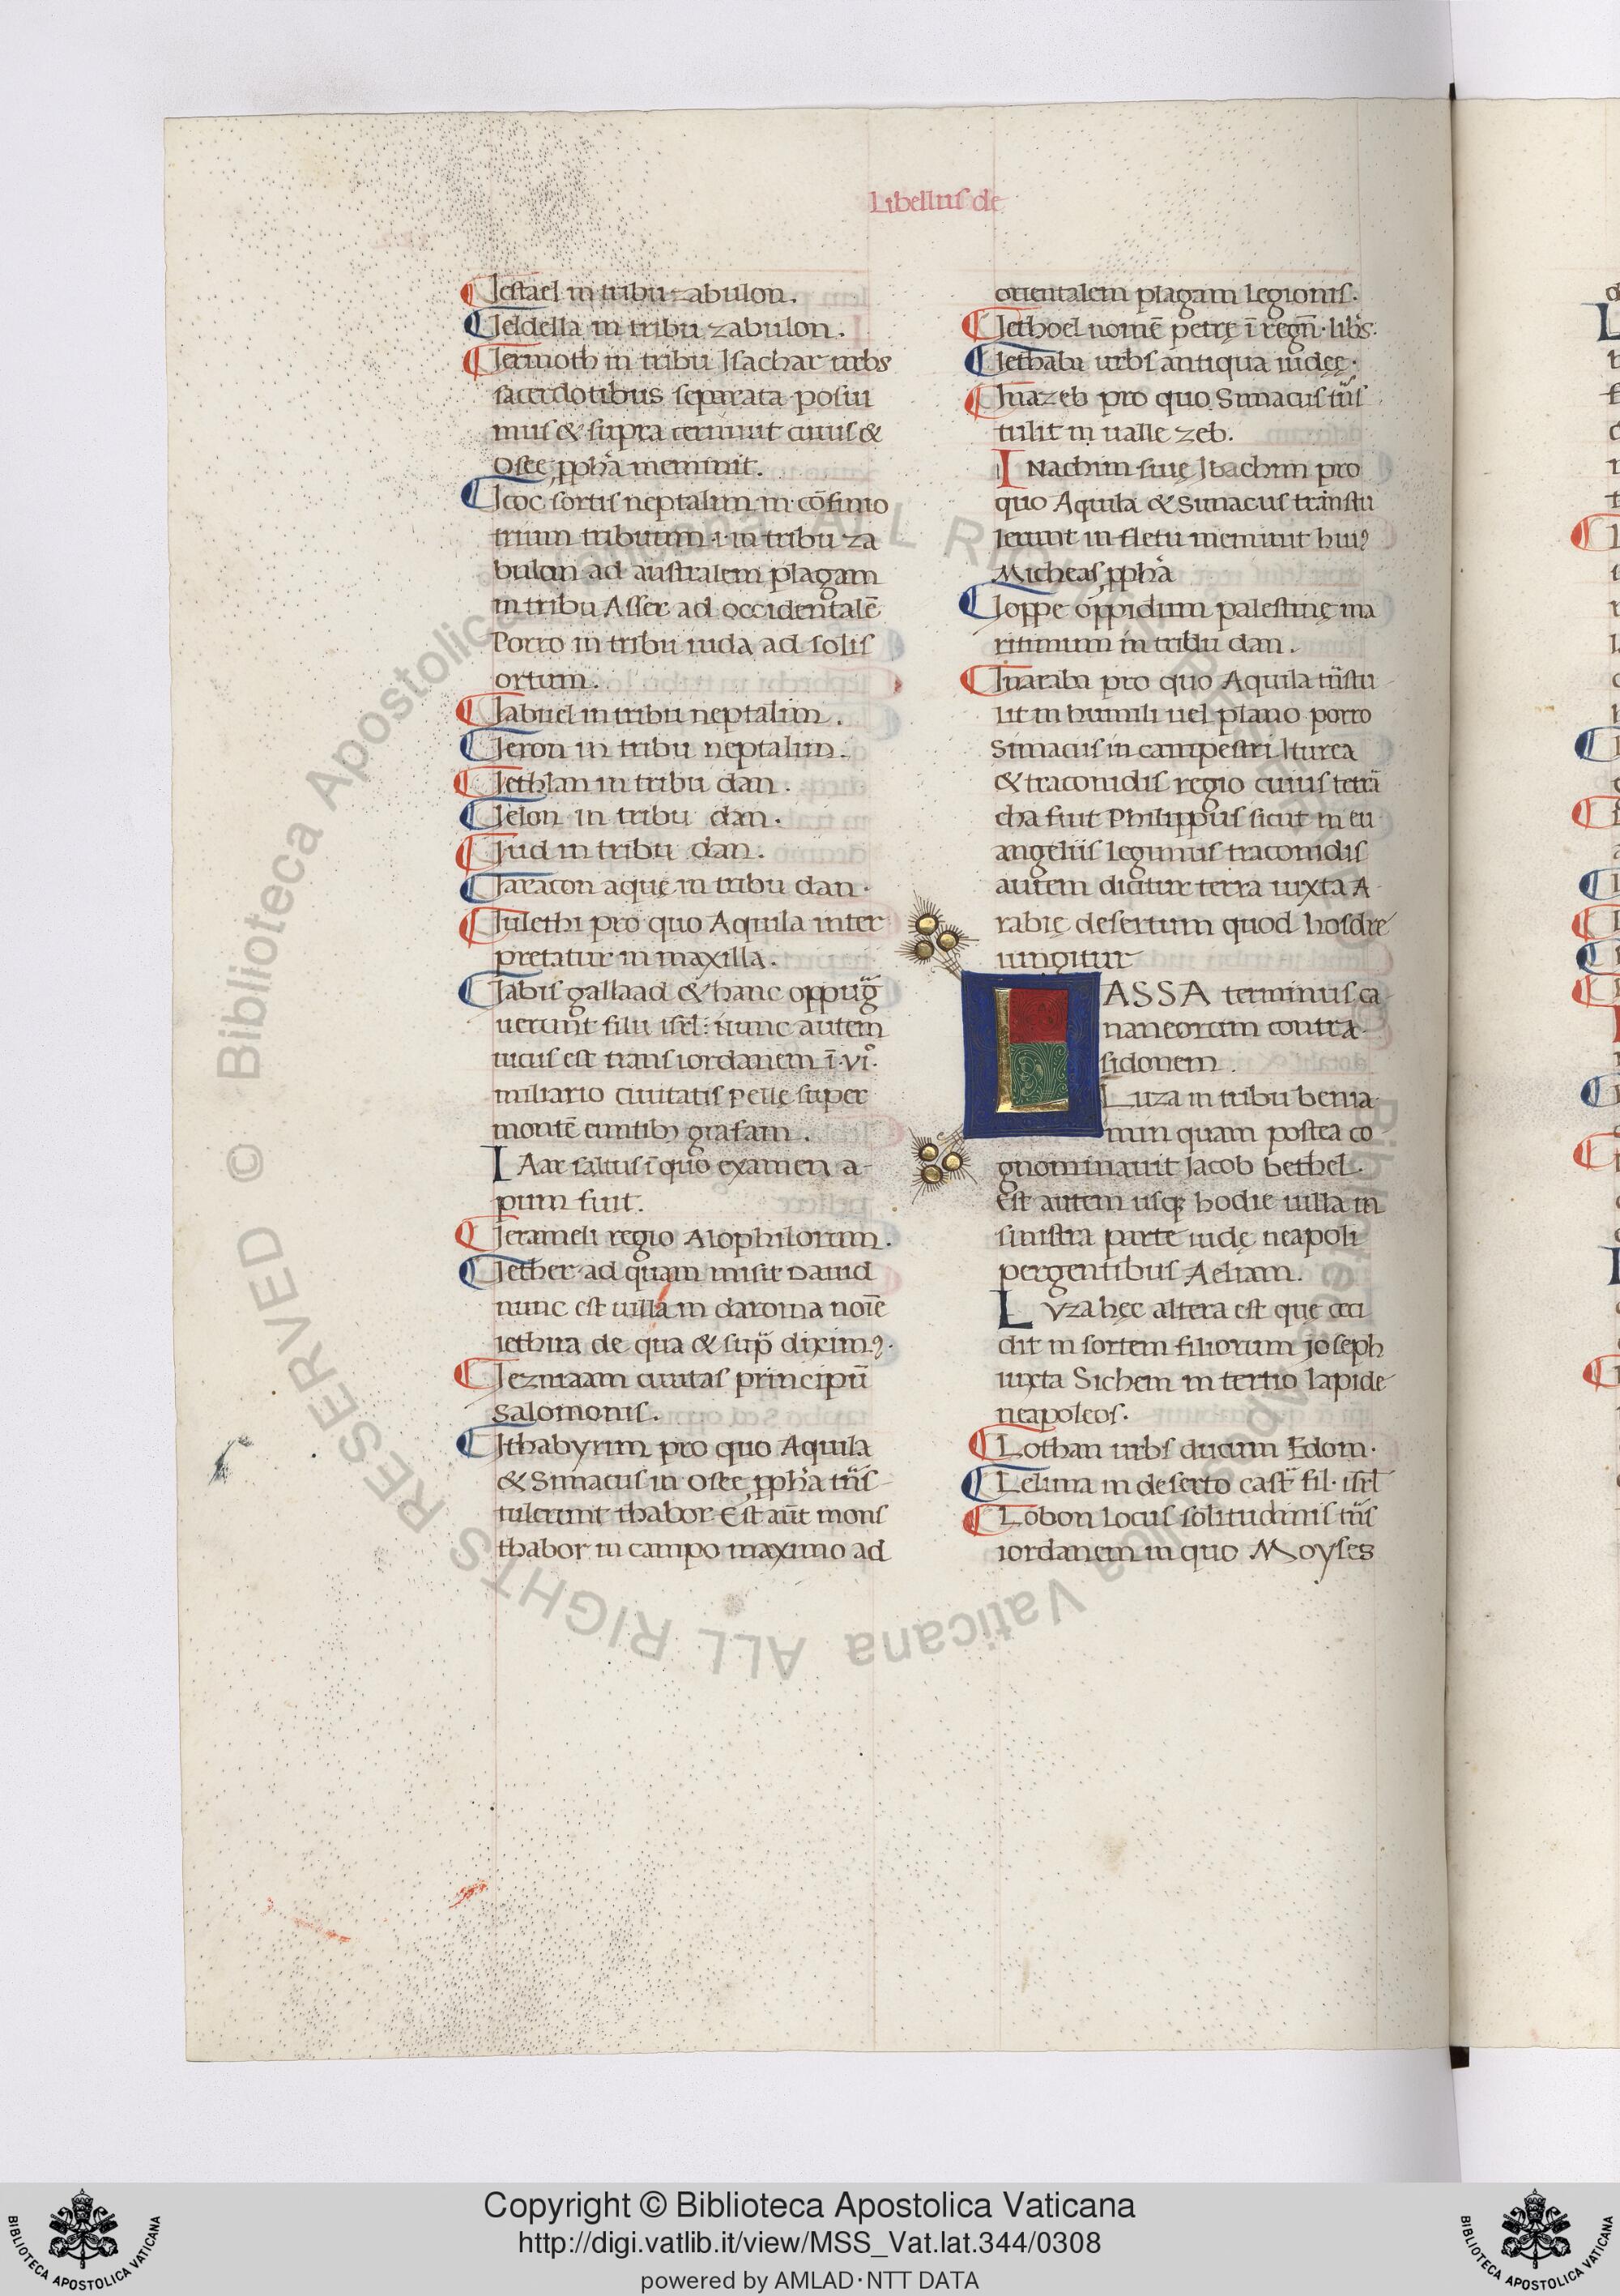 Libellus de
Iestael in tribu zabulon.
Ieldella in tribu zabulon.
Iermoth in tribu Isachar urbs
sacerdotibus separata posui
mus & supra cerimut cuius &
Osee ꝓpha meminit.
Icoc sortis neptalim in cōfinio
trium tribuum .i. in tribu za
bulon ad australem plagam
in tribu Asser ad occidentalē
Porro in tribu iuda ad solis
ortum.
Iabnel in tribu neptalim.
Ieron in tribu neptalim.
Iethlan in tribu dan.
Ielon in tribu dan.
Iud in tribu dan.
Iaracon aquę in tribu dan.
Iulethi pro quo Aquila inter
pretatur in maxilla.
Iabis gallaad & hanc oppug̃
uerunt filii isrl: nunc autem
uicus est trans iordanem ī .vi°.
miliario ciuitatis Pelle super
montē euntibꝫ grasam.
IAar saltus ī quo examen a-
pum fuit.
Ierameli regio Alophilorum.
Iether ad quam misit Dauid
nunc est uilla in daroma noīe
iethira de qua & sup̃ diximꝰ.
Iezraam ciuitas principū
Salomonis.
Ithabyrim pro quo Aquila
& Simacus in Osee ꝓpha trãs
tulerunt thabor Est aūt mons
thabor in campo maximo ad
orientalem plagam legionis.
Iethoel nomē petrę ī regñ. libs.
Iethaba urbs antiqua iudęę.
Inazeb pro quo Simacus trãs
tulit in ualle zeb.
INachim siuę Ibachim pro
quo Aquila & Simacus transtu
lerunt in fletu meminit huiꝰ
Micheas ꝓpha
Ioppe oppidum palestinę ma
ritimum in tribu dan.
Inaraba pro quo Aquila trãstu
lit in humili uel plano porro
Simacus in campestri. Iturea
& traconidis regio cuius tetra
cha fuit Philippus sicut in eu
angeliis legimus traconidis
autem dicitur terra iuxta A
rabię desertum quod bosdre
iungitur
LASSA terminus ca
naneorum contra
sidonem.
Luza in tribu benia
min quam postea co
gnominauit Jacob bethel.
Est autem usqꝫ hodie uilla in
sinistra parte iudę neapoli
pergentibus Aeliam.
LVza hęc altera est que ceci
dit in sortem filiorum joseph
iuxta Sichem in tertio lapide
neapoleos.
Lothan urbs ducum Edom.
Lelima in deserto castr̃ fil. isrl
Lobon locus solitudinis trãs
iordanem in quo Moyses
Copyright © Biblioteca Apostolica Vaticana
http://digi.vatlib.it/view/MSS_Vat.lat.344/0308
powered by AMLAD·NTT DATA
BIBLIOTECA APOSTOLICA VATICANA
BIBLIOTECA APOSTOLICA VATICANA
© Biblioteca Apostolica Vaticana ALL RIGHTS RESERVED